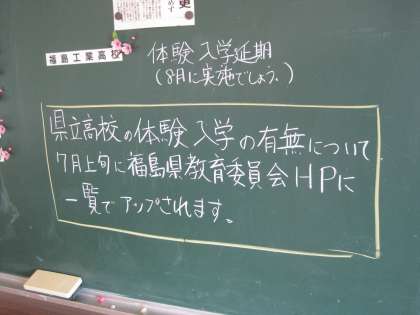 更
めず
福島工業高校
体験入学延期
(8月に実施でしょう。)
県立高校の体験入学の有無について
7月上旬に福島県教育委員会HPに
一覧でアップされます。